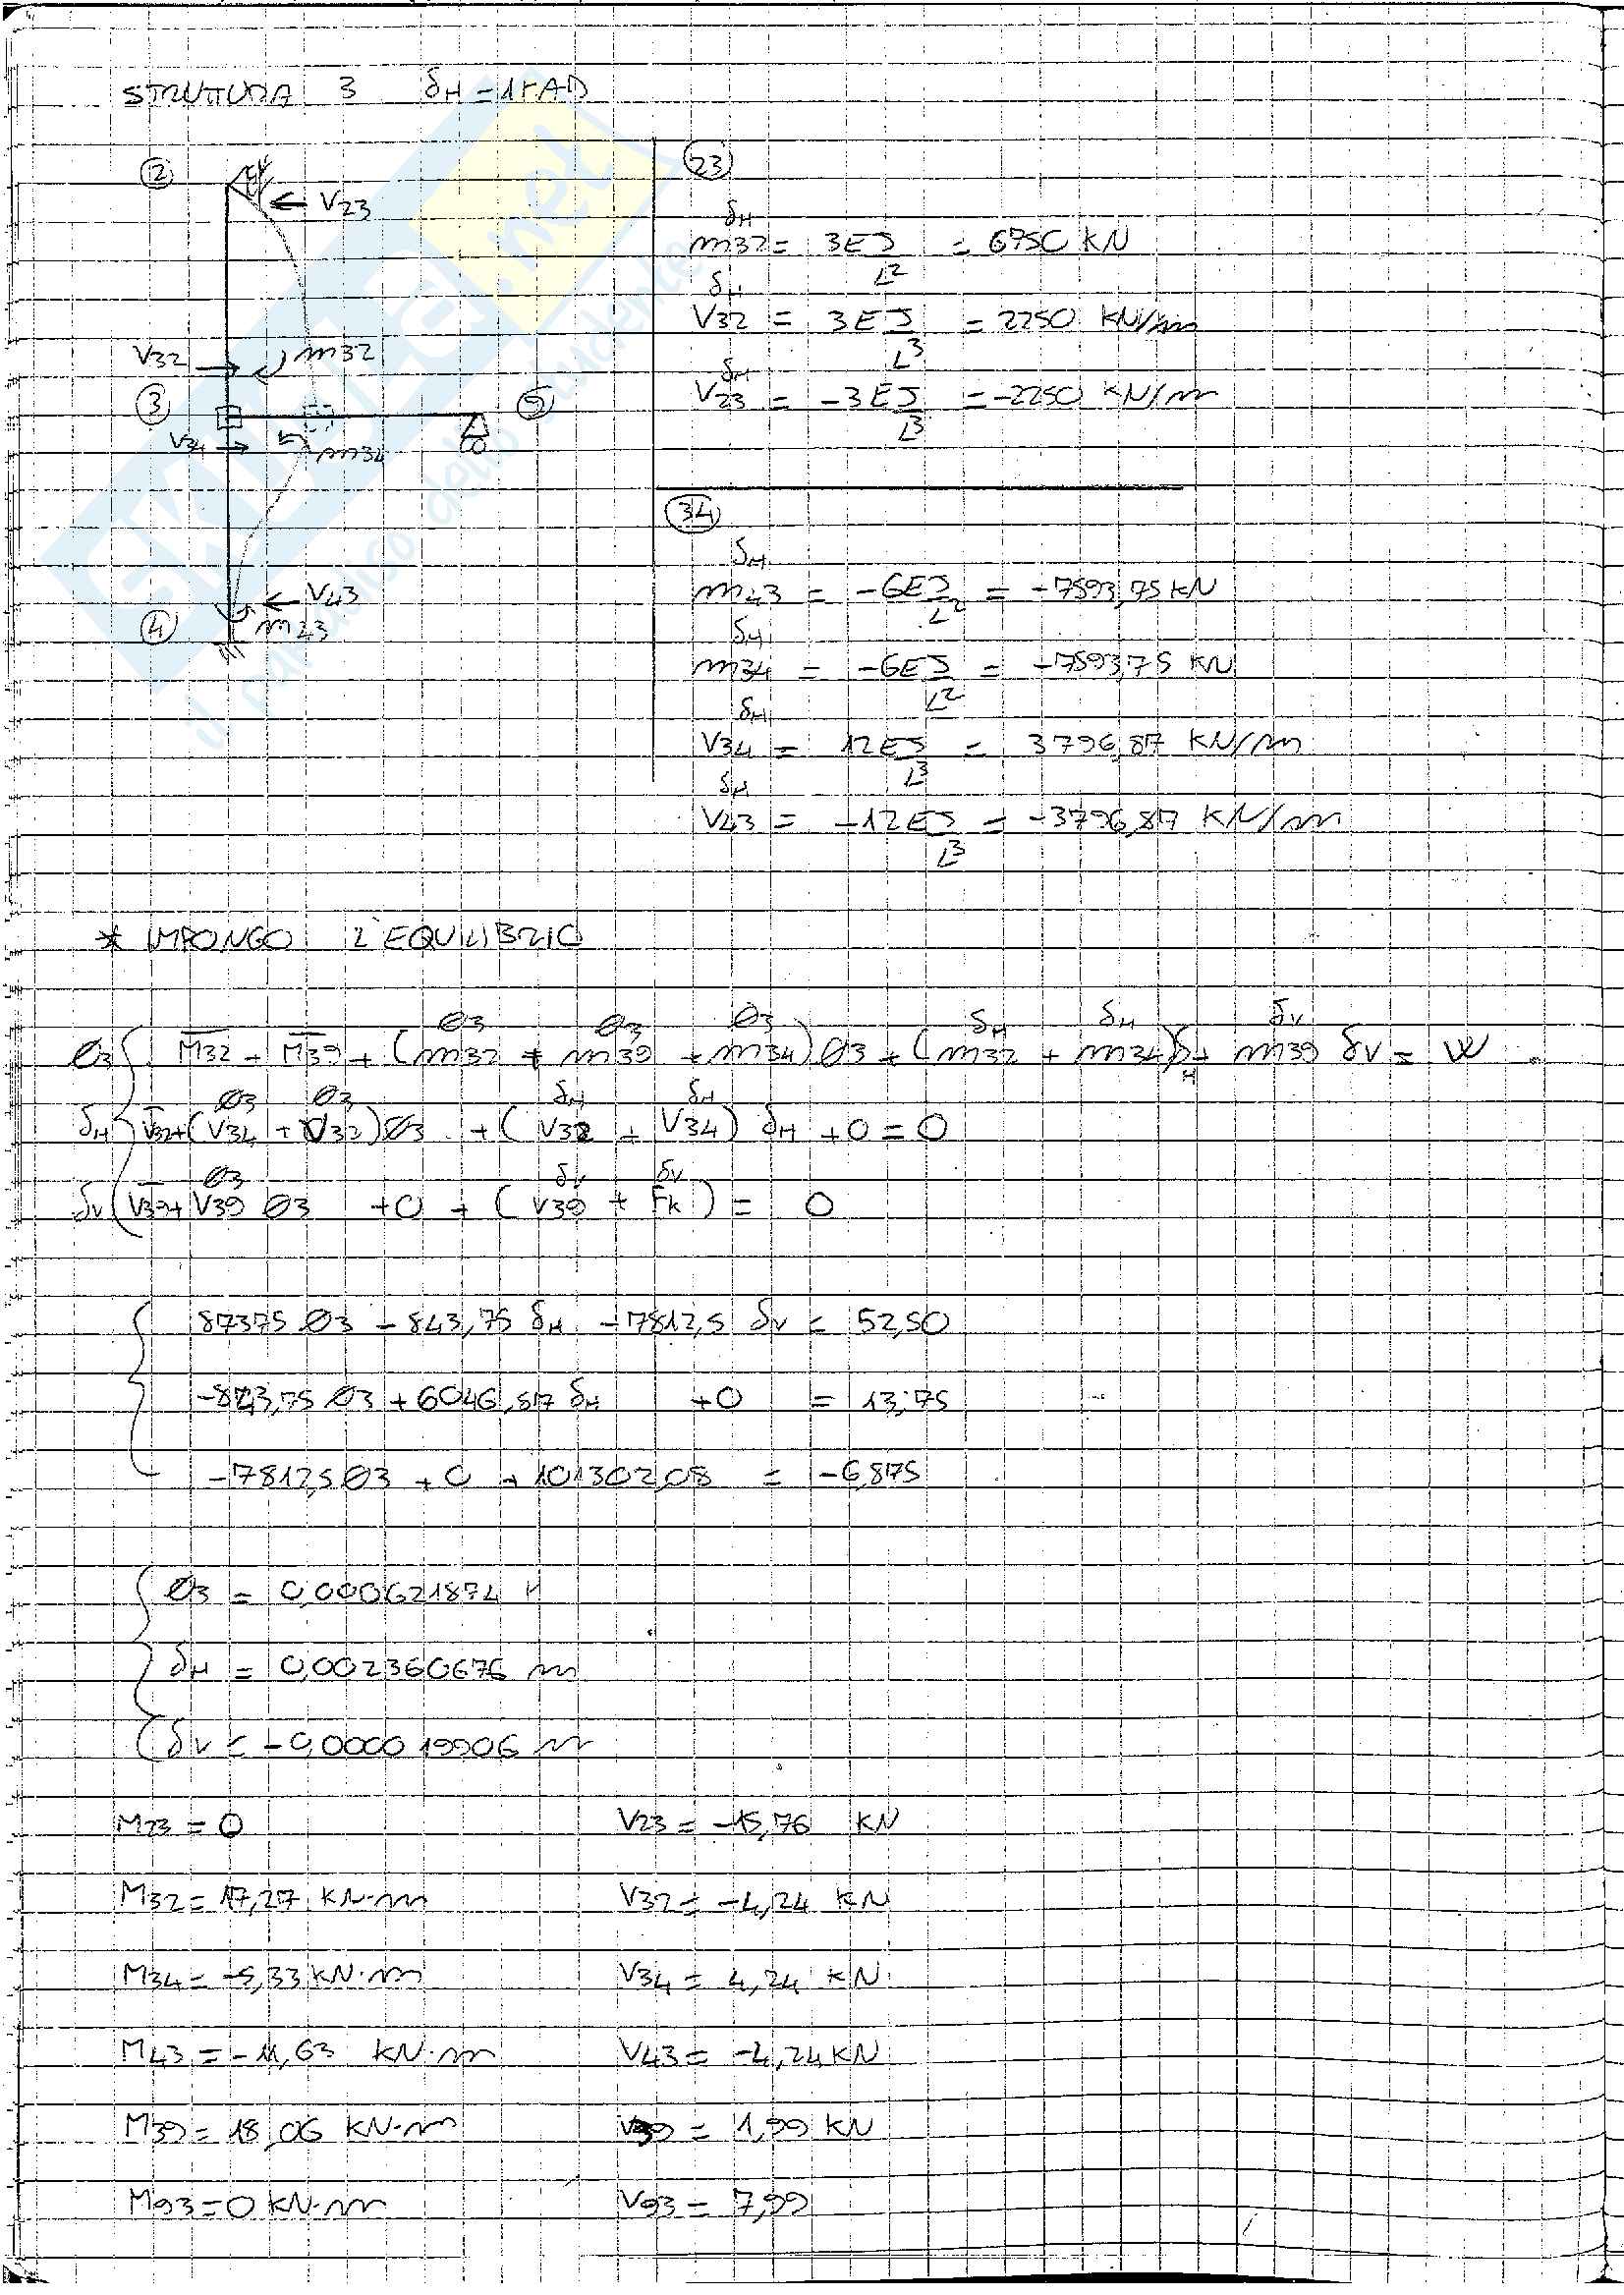 STRUTTURA 3 δH = 1 rAD
② V23
V32 m32
③ ⑨
V34 m34
V43
④ m43
㉓
m32^δH = 3EJ/L² = 6750 KN
V32^δH = 3EJ/L³ = 2250 KN/m
V23^δH = -3EJ/L³ = -2250 KN/m
㉞
m43^δH = -6EJ/L² = -7593,75 KN
m34^δH = -6EJ/L² = -7593,75 KN
V34^δH = 12EJ/L³ = 3796,87 KN/m
V43^δH = -12EJ/L³ = -3796,87 KN/m
* IMPONGO L'EQUILIBRIO
θ3 { M̅32 + M̅39 + (m32^θ3 + m39^θ3 + m34^θ3) θ3 + (m32^δH + m34^δH) δH + m39^δV δV = W
δH { V̅32 + (V34^θ3 + V32^θ3) θ3 + (V32^δH + V34^δH) δH + 0 = 0
δV { V̅39 + V39^θ3 θ3 + 0 + (V39^δV + Fk^δV) = 0
87375 θ3 - 843,75 δH - 7812,5 δV = 52,50
-843,75 θ3 + 6046,87 δH + 0 = 13,75
-7812,5 θ3 + 0 + 101302,08 = -6,875
θ3 = 0,000621874
δH = 0,002360676 m
δV = -0,000019906 m
M23 = 0 V23 = -15,76 KN
M32 = 17,27 KN·m V32 = -4,24 KN
M34 = -5,33 KN·m V34 = 4,24 KN
M43 = -11,63 KN·m V43 = -4,24 KN
M39 = 18,06 KN·m V39 = 1,99 KN
M93 = 0 KN·m V93 = 7,99
SKUOLA.net
il paradiso dello studente